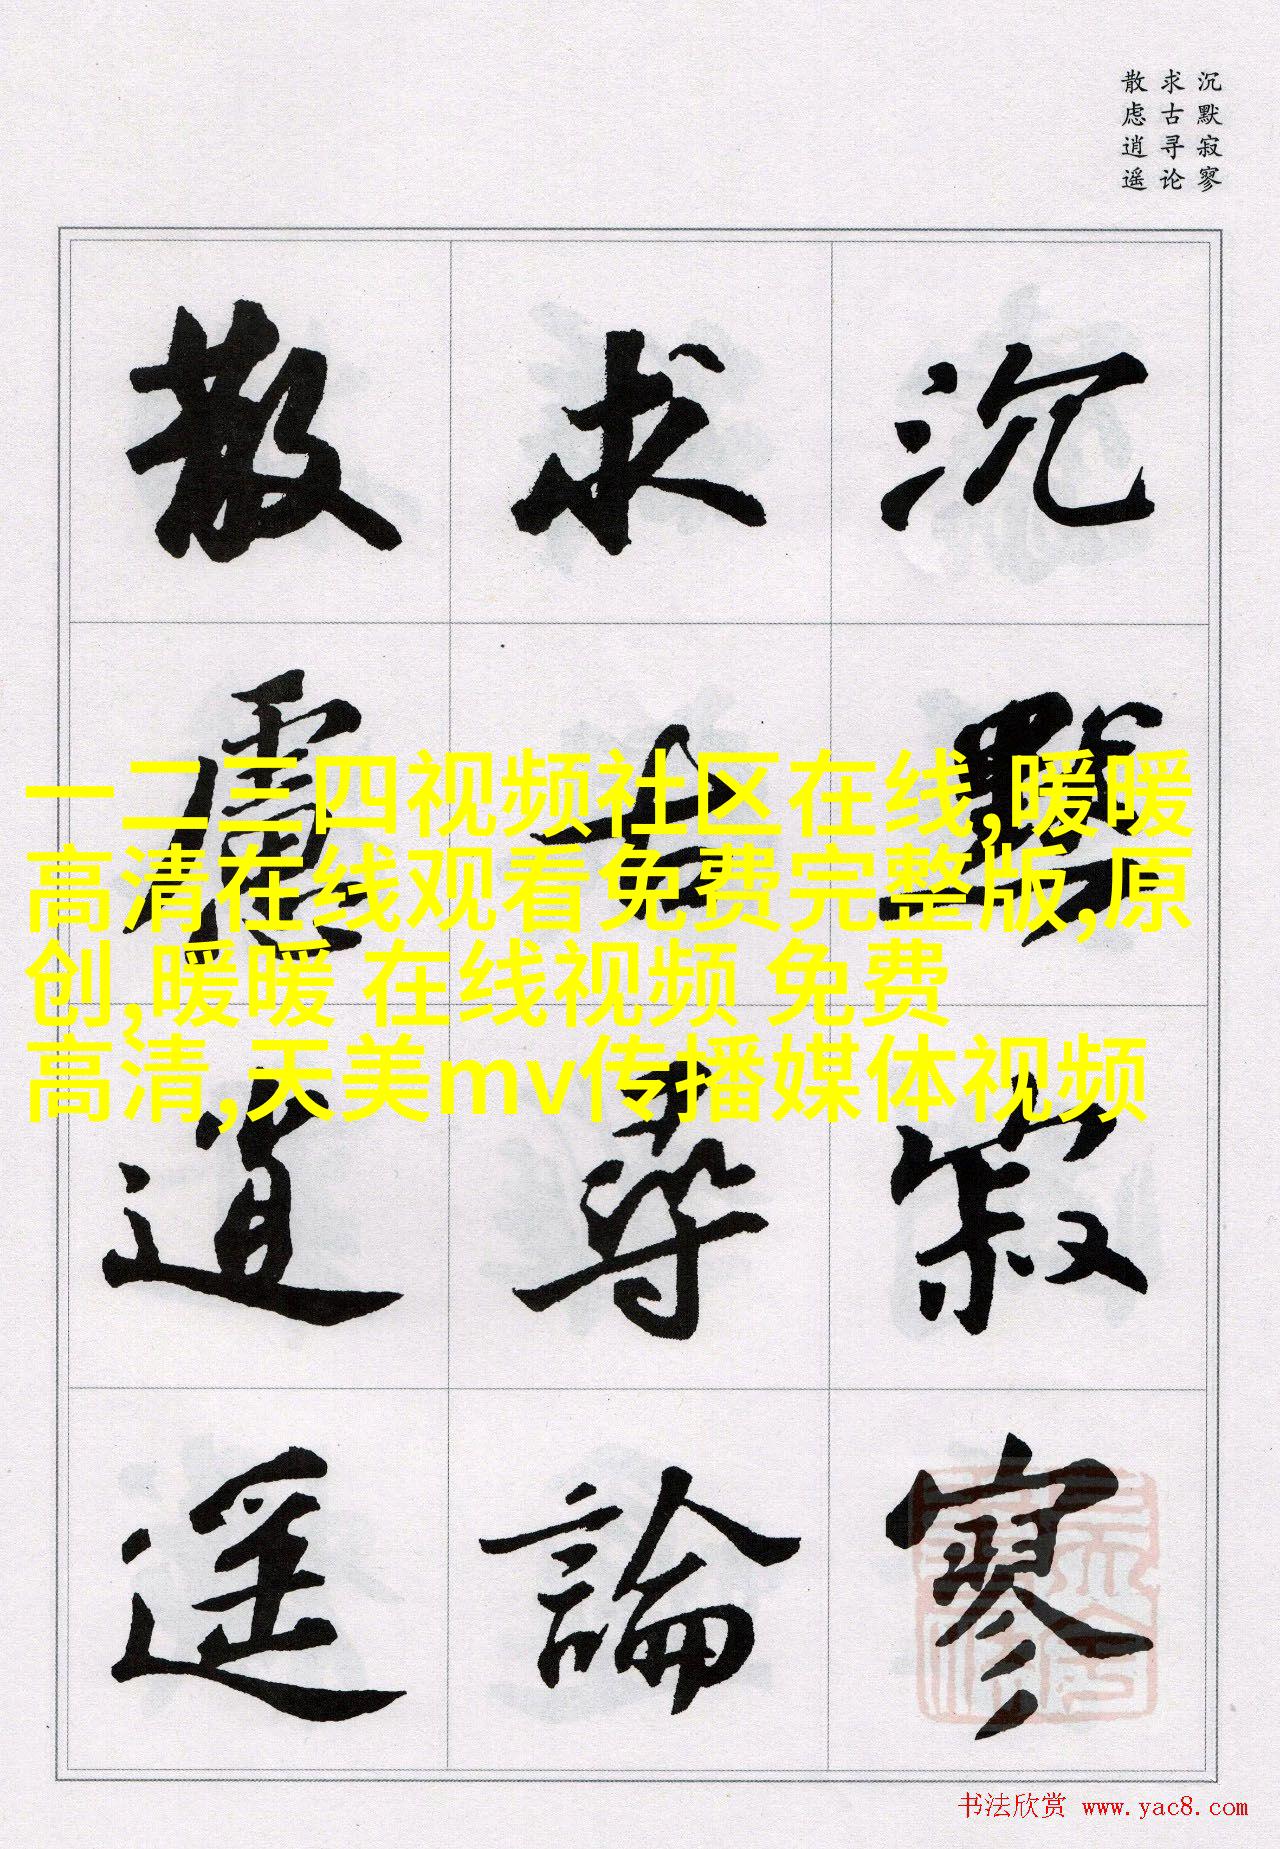 沉默寂寥
求古寻论
散虑逍遥
沉默寂寥
求古尋論
散慮逍遥
一二三四视频社区在线,暖暖
高清在线观看免费完整版,原
创,暖暖 在线视频 免费
高清,天美mv传播媒体视频
书法欣赏 www.yac8.com